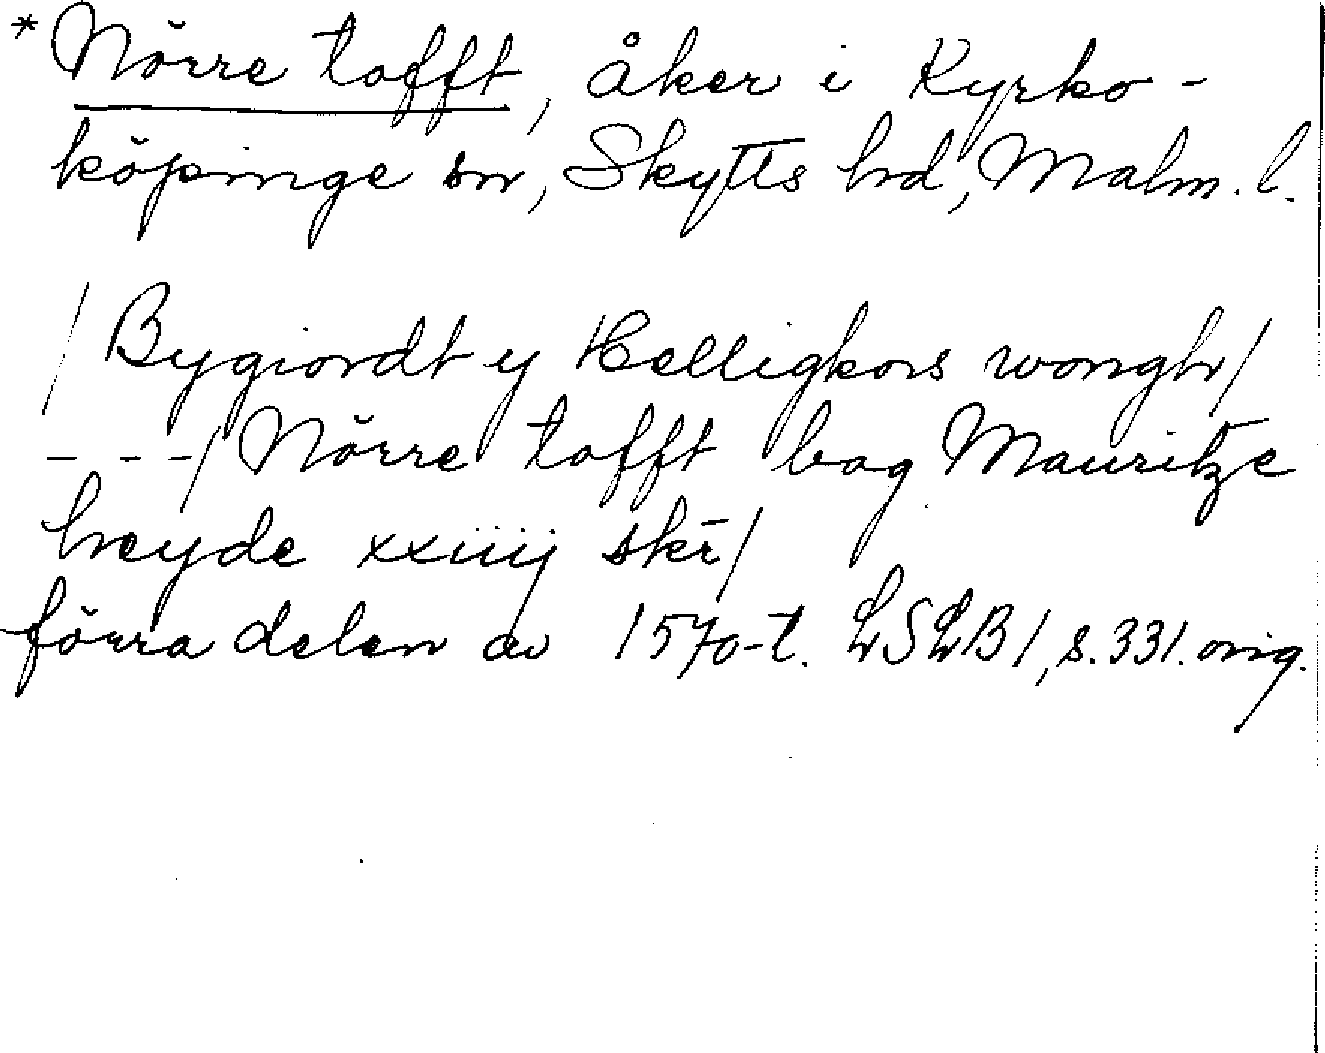 * Nörre tofft, åker i Kyrko-
köpinge sn, Skytts hd, Malm. l.
/ Bygiordt y Helligkors wongh /
- - - / Nörre tofft bag Mauritze
hreyde xxiiij skr̄ /
förra delen av 1570-t. LSLB 1, s. 331. orig.